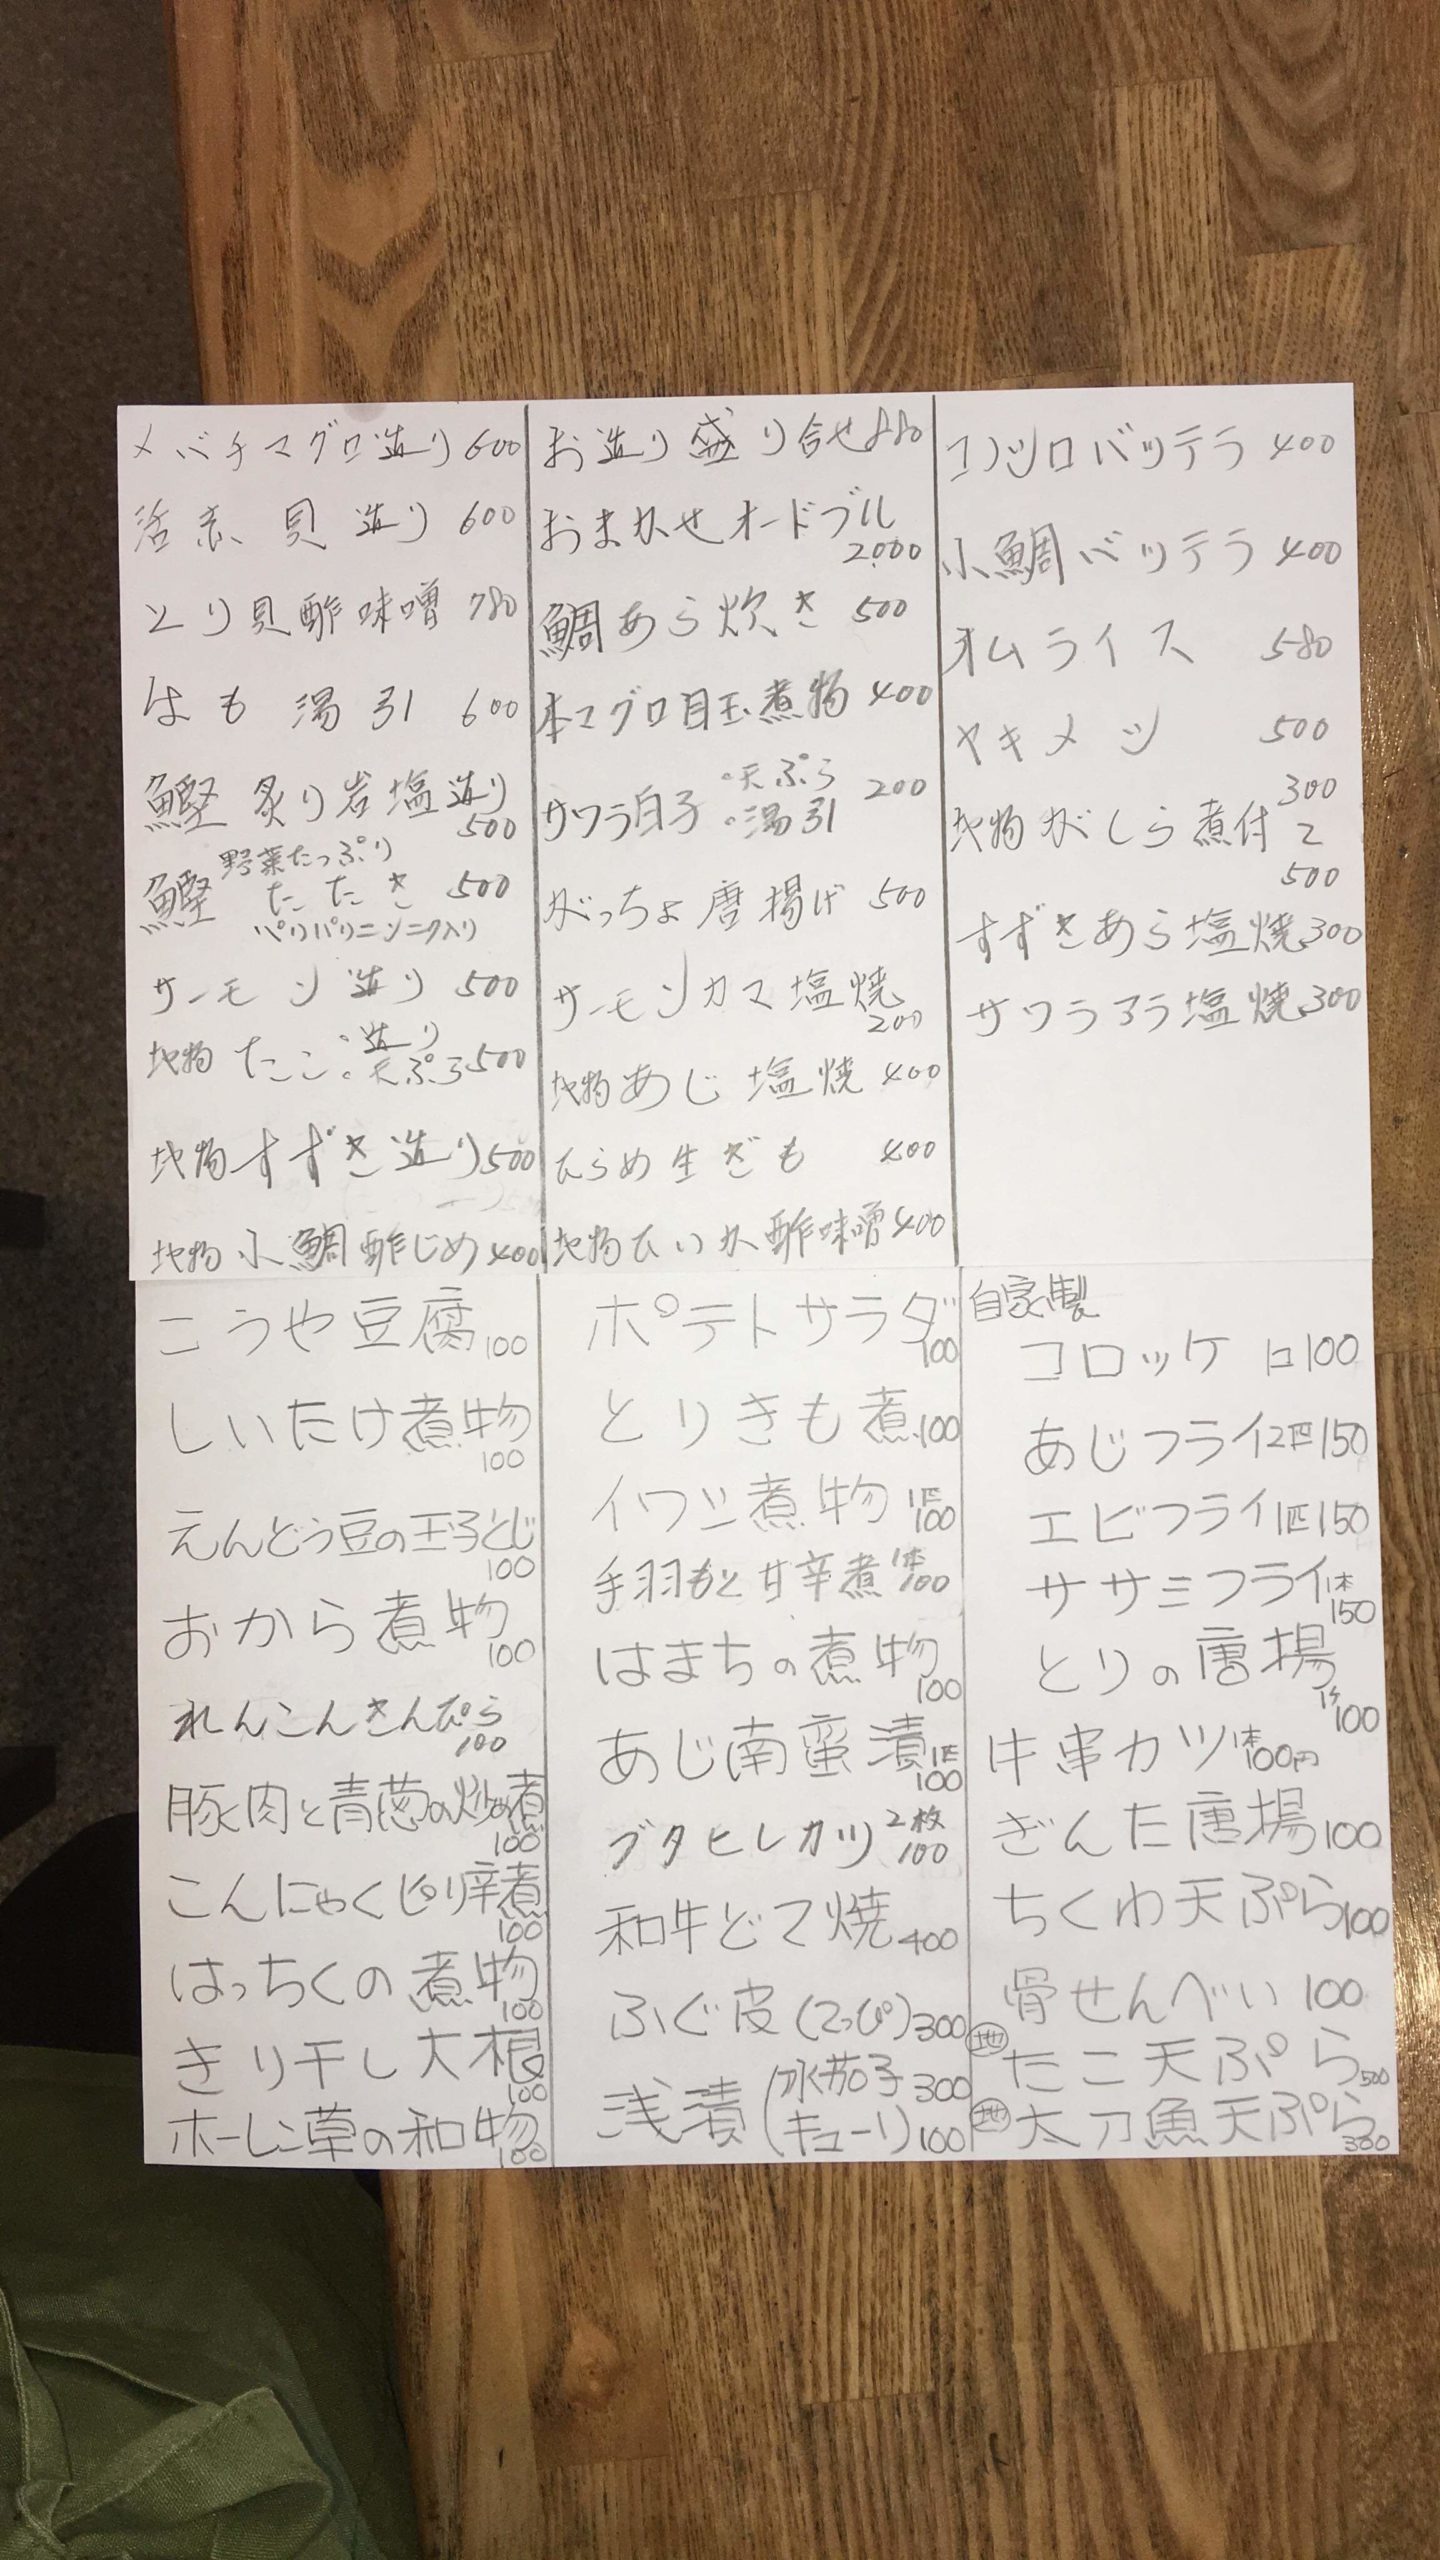 メバチマグロ造り 600
活赤貝造り 600
とり貝酢味噌 780
はも湯引 600
鰹炙り岩塩造り
500
野菜たっぷり
鰹たたき 500
パリパリニンニク入り
サーモン造り 500
地物たこ・造り
・天ぷら 500
地物すずき造り 500
地物小鯛酢じめ 400
お造り盛り合せ 880
おまかせオードブル
2000
鯛あら炊き 500
本マグロ目玉煮物 400
サワラ白子 ・天ぷら 200
・湯引
がっちょ唐揚げ 500
サーモンカマ塩焼
200
地物あじ塩焼 400
ひらめ生ぎも 400
地物ひいか酢味噌 400
コノシロバッテラ 400
小鯛バッテラ 400
オムライス 580
ヤキメシ 500
300
地物がしら煮付 と
500
すずきあら塩焼 300
サワラアラ塩焼 300
こうや豆腐 100
しいたけ煮物
100
えんどう豆の玉子とじ
100
おから煮物
100
れんこんきんぴら
100
豚肉と青葱の炒め煮
100
こんにゃくピリ辛煮
100
はっちくの煮物
100
きり干し大根
100
ホーレン草の和物
100
ポテトサラダ
100
とりきも煮 100
イワシ煮物 1匹
100
手羽もと甘辛煮 1本
100
はまちの煮物
100
あじ南蛮漬 1匹
100
ブタヒレカツ 2枚
100
和牛どて焼 400
ふぐ皮(てっぴ) 300
浅漬(水茄子 300
キューリ) 100
自家製
コロッケ 1コ 100
あじフライ 2匹 150
エビフライ 1匹 150
ササミフライ 1本
150
とりの唐揚
1ケ
100
牛串カツ 1本
100円
ぎんた唐揚 100
ちくわ天ぷら 100
骨せんべい 100
地 たこ天ぷら 500
地 太刀魚天ぷら
300